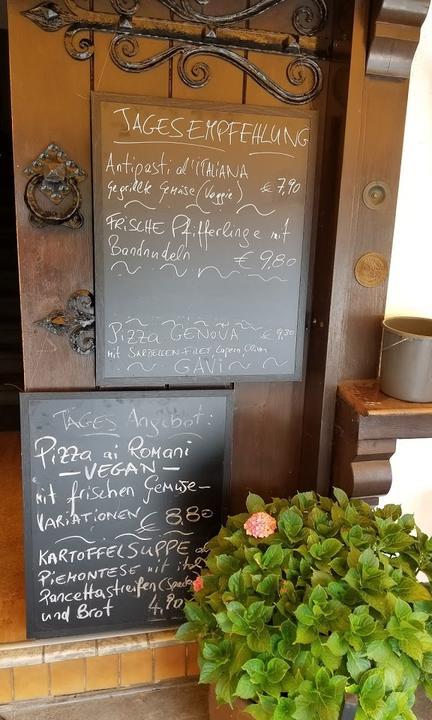 TAGESEMPFEHLUNG
Antipasti al'ITALIANA
gegrillte Gemüse (Veggie) € 7,90
FRISCHE Pfifferlinge mit
Bandnudeln € 9,80
Pizza GENOVA € 9,30
mit SARDELLEN-FILET Capern
GAVI
TAGES Angebot:
Pizza ai Romani
— VEGAN —
mit frischen Gemüse-
VARIATIONEN € 8,80
KARTOFFELSUPPE al
PIEMONTESE mit ital
Pancettastreifen
und Brot 4,90